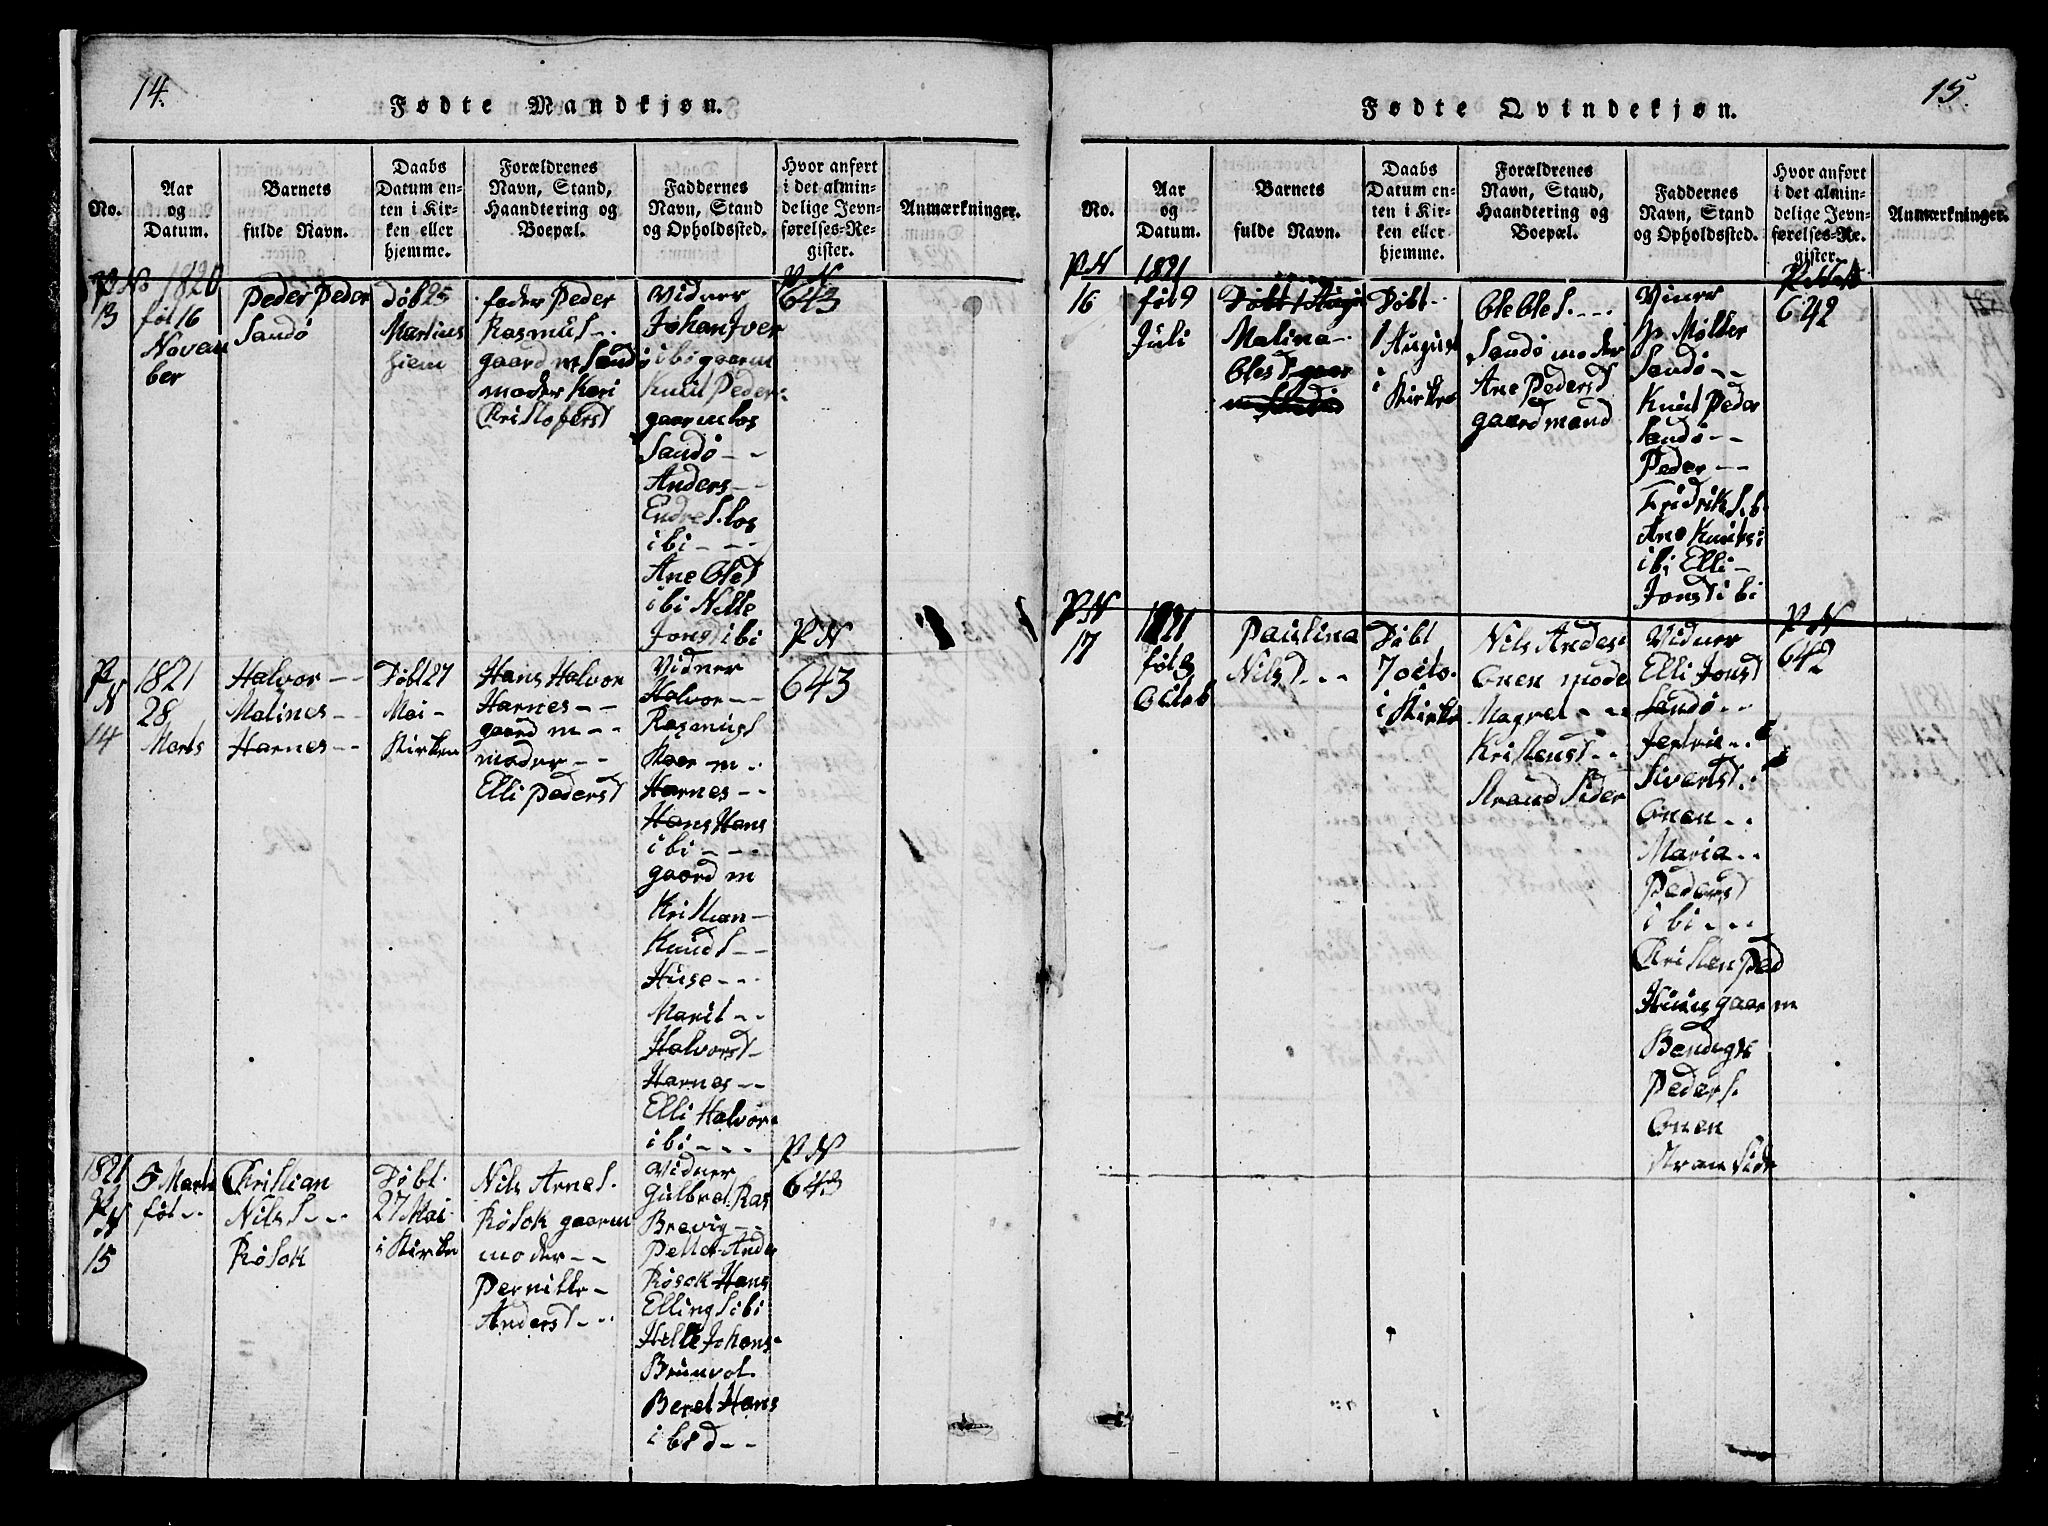 14.
Fødte Mandkjøn.
No.
Aar
og
Datum.
Barnets
fulde Navn.
Daabs
Datum en-
ten i Kir-
ken eller
hjemme.
Forældrenes
Navn, Stand,
Haandtering og
Boepæl.
Faddernes
Navn, Stand
og Opholdssted.
Hvor anført
i det almin-
delige Jevn-
førelses-Re-
gister.
Anmærkninger.
P No
13
1820
føt 16
Novem
ber
Peder Peder
Sandö
Döbt 25
Martius
hiem
fader Peder
Rasmus S.
gaard m Sandö
moder Kari
Kristofersd
Vidner
Johan Iver
ibi gaarm
Knut Peder
gaarm los
Sandö - -
Anders - -
Endre S. los
ibi - - -
Ane Olesd
ibi Nille
Jonsd ibi
P N
643
P
N
14
1821
28
Marts
Halvor - -
Malines - -
Harnes - -
Döbt 27
Mai -
Kirken
Hans Halvor
Harnes - -
gaard m - -
moder - -
Elli Pedersd
Vidner
Halvor - -
Rasmus S
m - -
Harnes - -
Hans Hans
ibi - - -
gaard m
Kristian -
Knud S - -
Huse - - -
Marit - -
Halvorsd -
Harnes - -
Elli Halvor
ibi - - -
P N
643
1821
P
N
15
5 Marts
føt - -
Kristian
Nils S - - -
Rösok
Döbt
27 Mai
i Kirken
Nils Arne S.
Rösok gaarm
moder - -
Pernille -
Andersd - - -
Vidner
Gulbrat Ras
Brevig - -
Ander
Rösok Hans
Elling S ibi
Johans
Brunvol
Beret Hans
ibi d - -
P N
643
15.
Fødte Qvindekjøn.
No.
Aar
og
Datum.
Barnets
fulde Navn.
Daabs
Datum en-
ten i Kir-
ken eller
hjemme.
Forældrenes
Navn, Stand,
Haandtering og
Boepæl.
Faddernes
Navn, Stand
og Opholdssted.
Hvor anført
i det almin-
delige Jevn-
førelses-Re-
gister.
Anmærkninger.
P N
16
1821
föt 9
Juli
Malina -
Olesd
Döbt - -
1 August
i
Kirke
Ole Ole S. - - -
Sandö moder
Ane Pedersd
gaardmand
Møller
Sandö - -
Knut Peder
Sandö - -
Peder - -
Fridrik S. ib
Ane Knuts
ibi Elli -
Jonsd ibi
642
P N
17
1821
föt 3
Octob
Paulina
Nilsd - - -
Döbt
7 octo.
i Kirke
Nils Anders
Onen mode
Magret - -
Kristensd - -
Strand Sider
Vidner
Elli Jonsd
Sandö - -
Sivertsd
Onen - -
Maria - -
Pedersd
ibi - - -
Kristen Ped
gaar m
Peder S.
Onen
P N
642